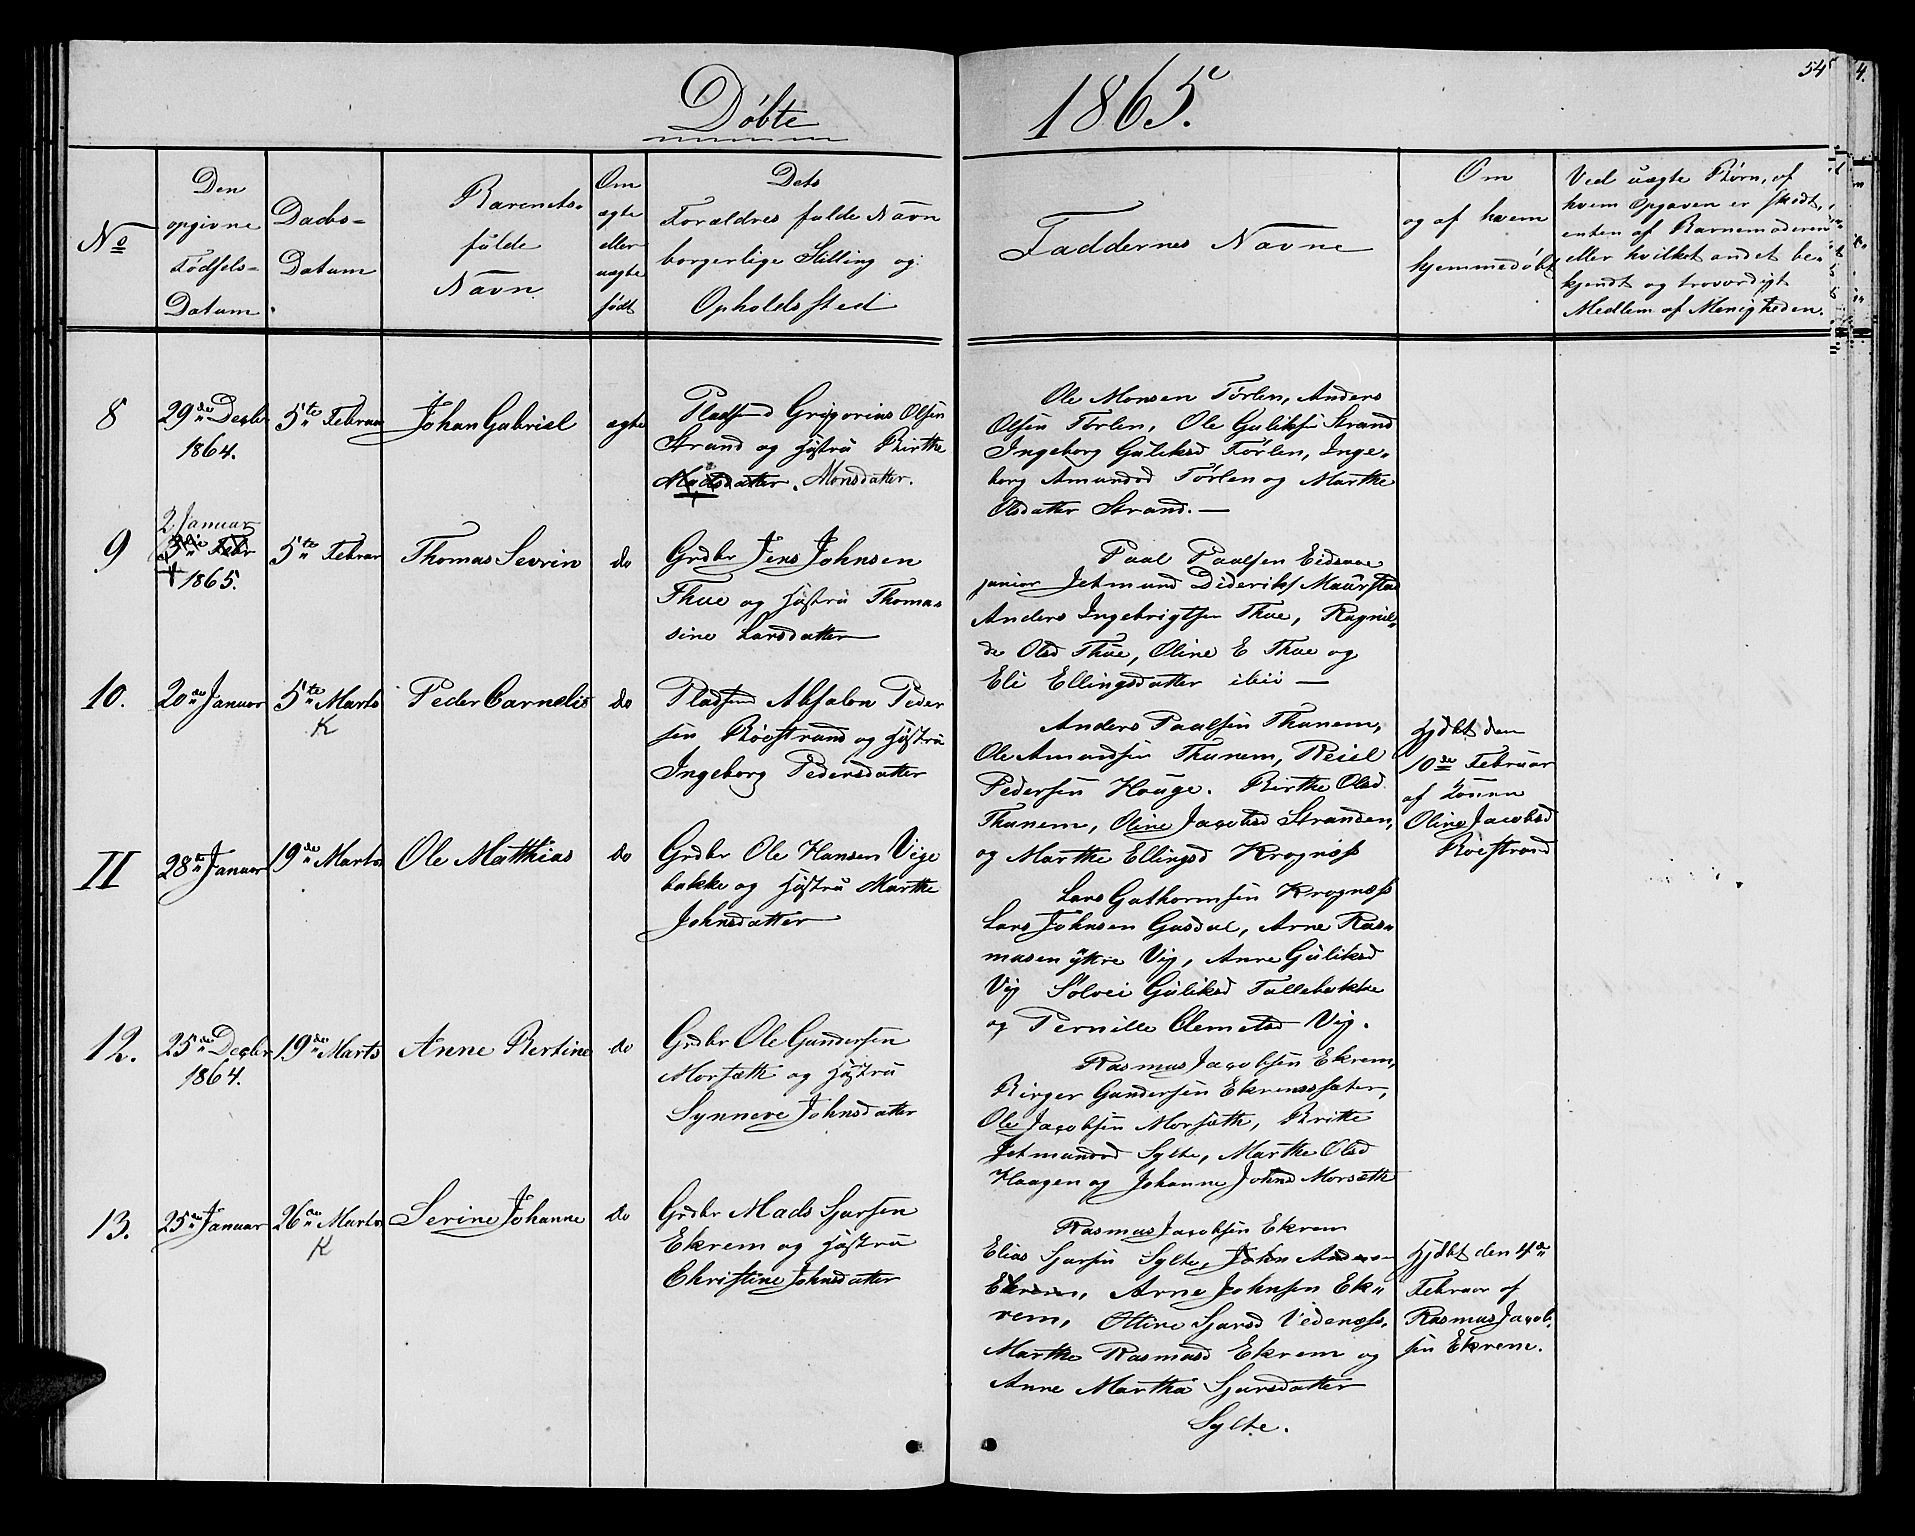 Døbte
1865.
54
4.
No
Den
opgivne
Fødsels-
Datum.
Daabs-
Datum
Barnets
fulde
Navn.
Om
ægte
eller
uægte
født
Dets
Forældres fulde Navn
borgerlige Stilling og
Opholdssted
Faddernes Navne
Om
og af hvem
hjemmedøbt
Ved uægte Børn, af
hvem Opgaven er skedt,
enten af Barnemoderen
eller hvilket andet be-
kjendt og troværdigt
Medlem af Menigheden.
8
29de Decbr
1864.
5te Februar
Johan Gabriel
ægte
Pladsmd Grigorius Olsen
Strand og Hustru Birthe
Madsdatter. Monsdatter.
Ole Monsen Tørlen, Anders
Olsen Tørlen, Ole Guliks. Strand
Ingeborg Guliksd Tørlen, Inge-
borg Amundsd Tørlen og Marthe
Olsdatter Strand. —
9
2 Januar
Febr
1865.
5te Februar
Thomas Sevrin
do
Grdbr Jens Johnsen
Thue og Hustru Thoma-
sine Larsdatter
Paal Paalsen Eidsaae
junior Jetmund Dideriks. Maurstad
Anders Ingebrigtsen Thue, Ragnil-
de Olsd Thue, Oline E Thue og
Eli Ellingsdatter ibid —
10.
20de Januar
5te Marts
K
Peder Carnelis
do
Pladsmd Absalon Peder
sen Röistrand og Hustru
Ingeborg Pedersdatter
Anders Paalsen Thunem,
Ole Amundsen Thunem, Reiel
Pedersen Hauge. Birthe Olsd.
Thunem, Oline Jacobsd Stranden,
og Marthe Ellingsd Krognæss
Hjdbt den
10de Februar
af Konen
Oline Jacobsd
Röistrand
11
28de Januar
19de Marts
Ole Matthias
do
Grdbr Ole Hansen Vige
bakke og Hustru Marthe
Johnsdatter
Lars Guthormsen Krognæss
Lars Johnsen Gusdal, Arne Ras-
musen ytre Vig, Anne Guliksd
Vig Sølvei Guliksd Tallebakke
og Pernille Clemetsd Vig.
12.
25de Decbr
1864.
19de Marts
Anne Bertine
do
Grdbr Ole Gundersen
Morsæth og Hustru
Synneve Johnsdatter
Rasmus Jacobsen Ekrem,
Birger Gundersen Ekremssæter,
Ole Jacobsen Morsæth, Brithe
Jetmundsd Sylte, Marthe Olsd
Haagen og Johanne Johnsd Morsæth
13.
25de Januar
26de Marts
K
Serine Johanne
do
Grdbr Mads Sjursen
Ekrem og Hustru
Christine Johnsdatter
Rasmus Jacobsen Ekrem
Elias Sjursen Sylte, John Andersen
Ekrem, Arne Johnsen Ek-
rem, Oline Sjursd Vedenæss,
Marthe Rasmusd Ekrem og
Anne Martha Sjursdatter
Sylte.
Hjdbt den 4de
Februar af
Rasmus Jacob.
sen Ekrem.